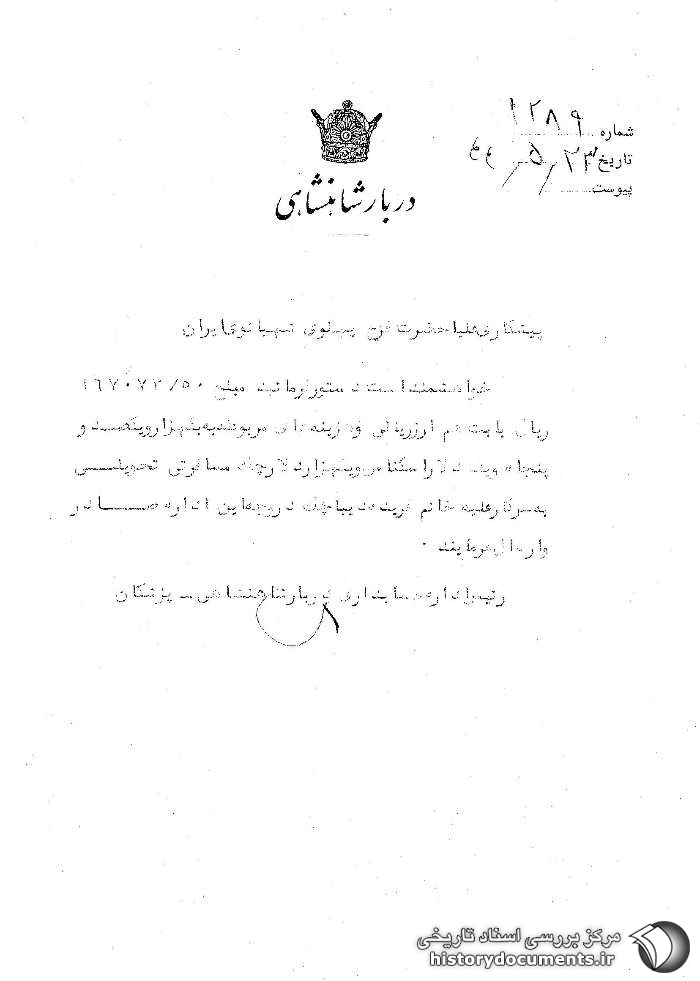 شماره ۱۲۸۹
تاریخ ۲۳/۵/۴۴
پیوست
دربار شاهنشاهی
پیشکاری علیاحضرت فرح پهلوی شهبانوی ایران
خواهشمند است دستور فرمائید مبلغ ۱۶۷۰۷۲/۵۰
ریال بابت هم ارز ریالی هزینه های مربوط به یکهزار و یکصد و
پنجاه و یک دلار اسکناس و یکهزار دلار چک مسافرتی تحویلی
به سرکار علیه خانم فریده دیبا چک در وجه این اداره صادر
و ارسال فرمایند ۰
رئیس اداره حسابداری دربار شاهنشاهی ـ پزشکان
مرکز بررسی اسناد تاریخی
historydocuments.ir